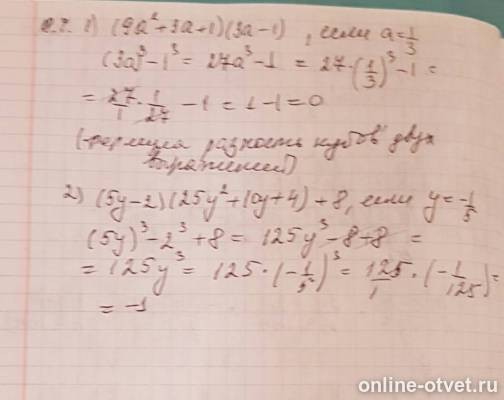 1) (9a² + 3a + 1)(3a - 1), если a = 1/3
(3a)³ - 1³ = 27a³ - 1 = 27 · (1/3)³ - 1 =
= 27/1 · 1/27 - 1 = 1 - 1 = 0
(формула разность кубов двух
выражений)
2) (5y - 2)(25y² + 10y + 4) + 8, если y = -1/5
(5y)³ - 2³ + 8 = 125y³ - 8 + 8 =
= 125y³ = 125 · (-1/5)³ = 125/1 · (-1/125) =
= -1
online-otvet.ru